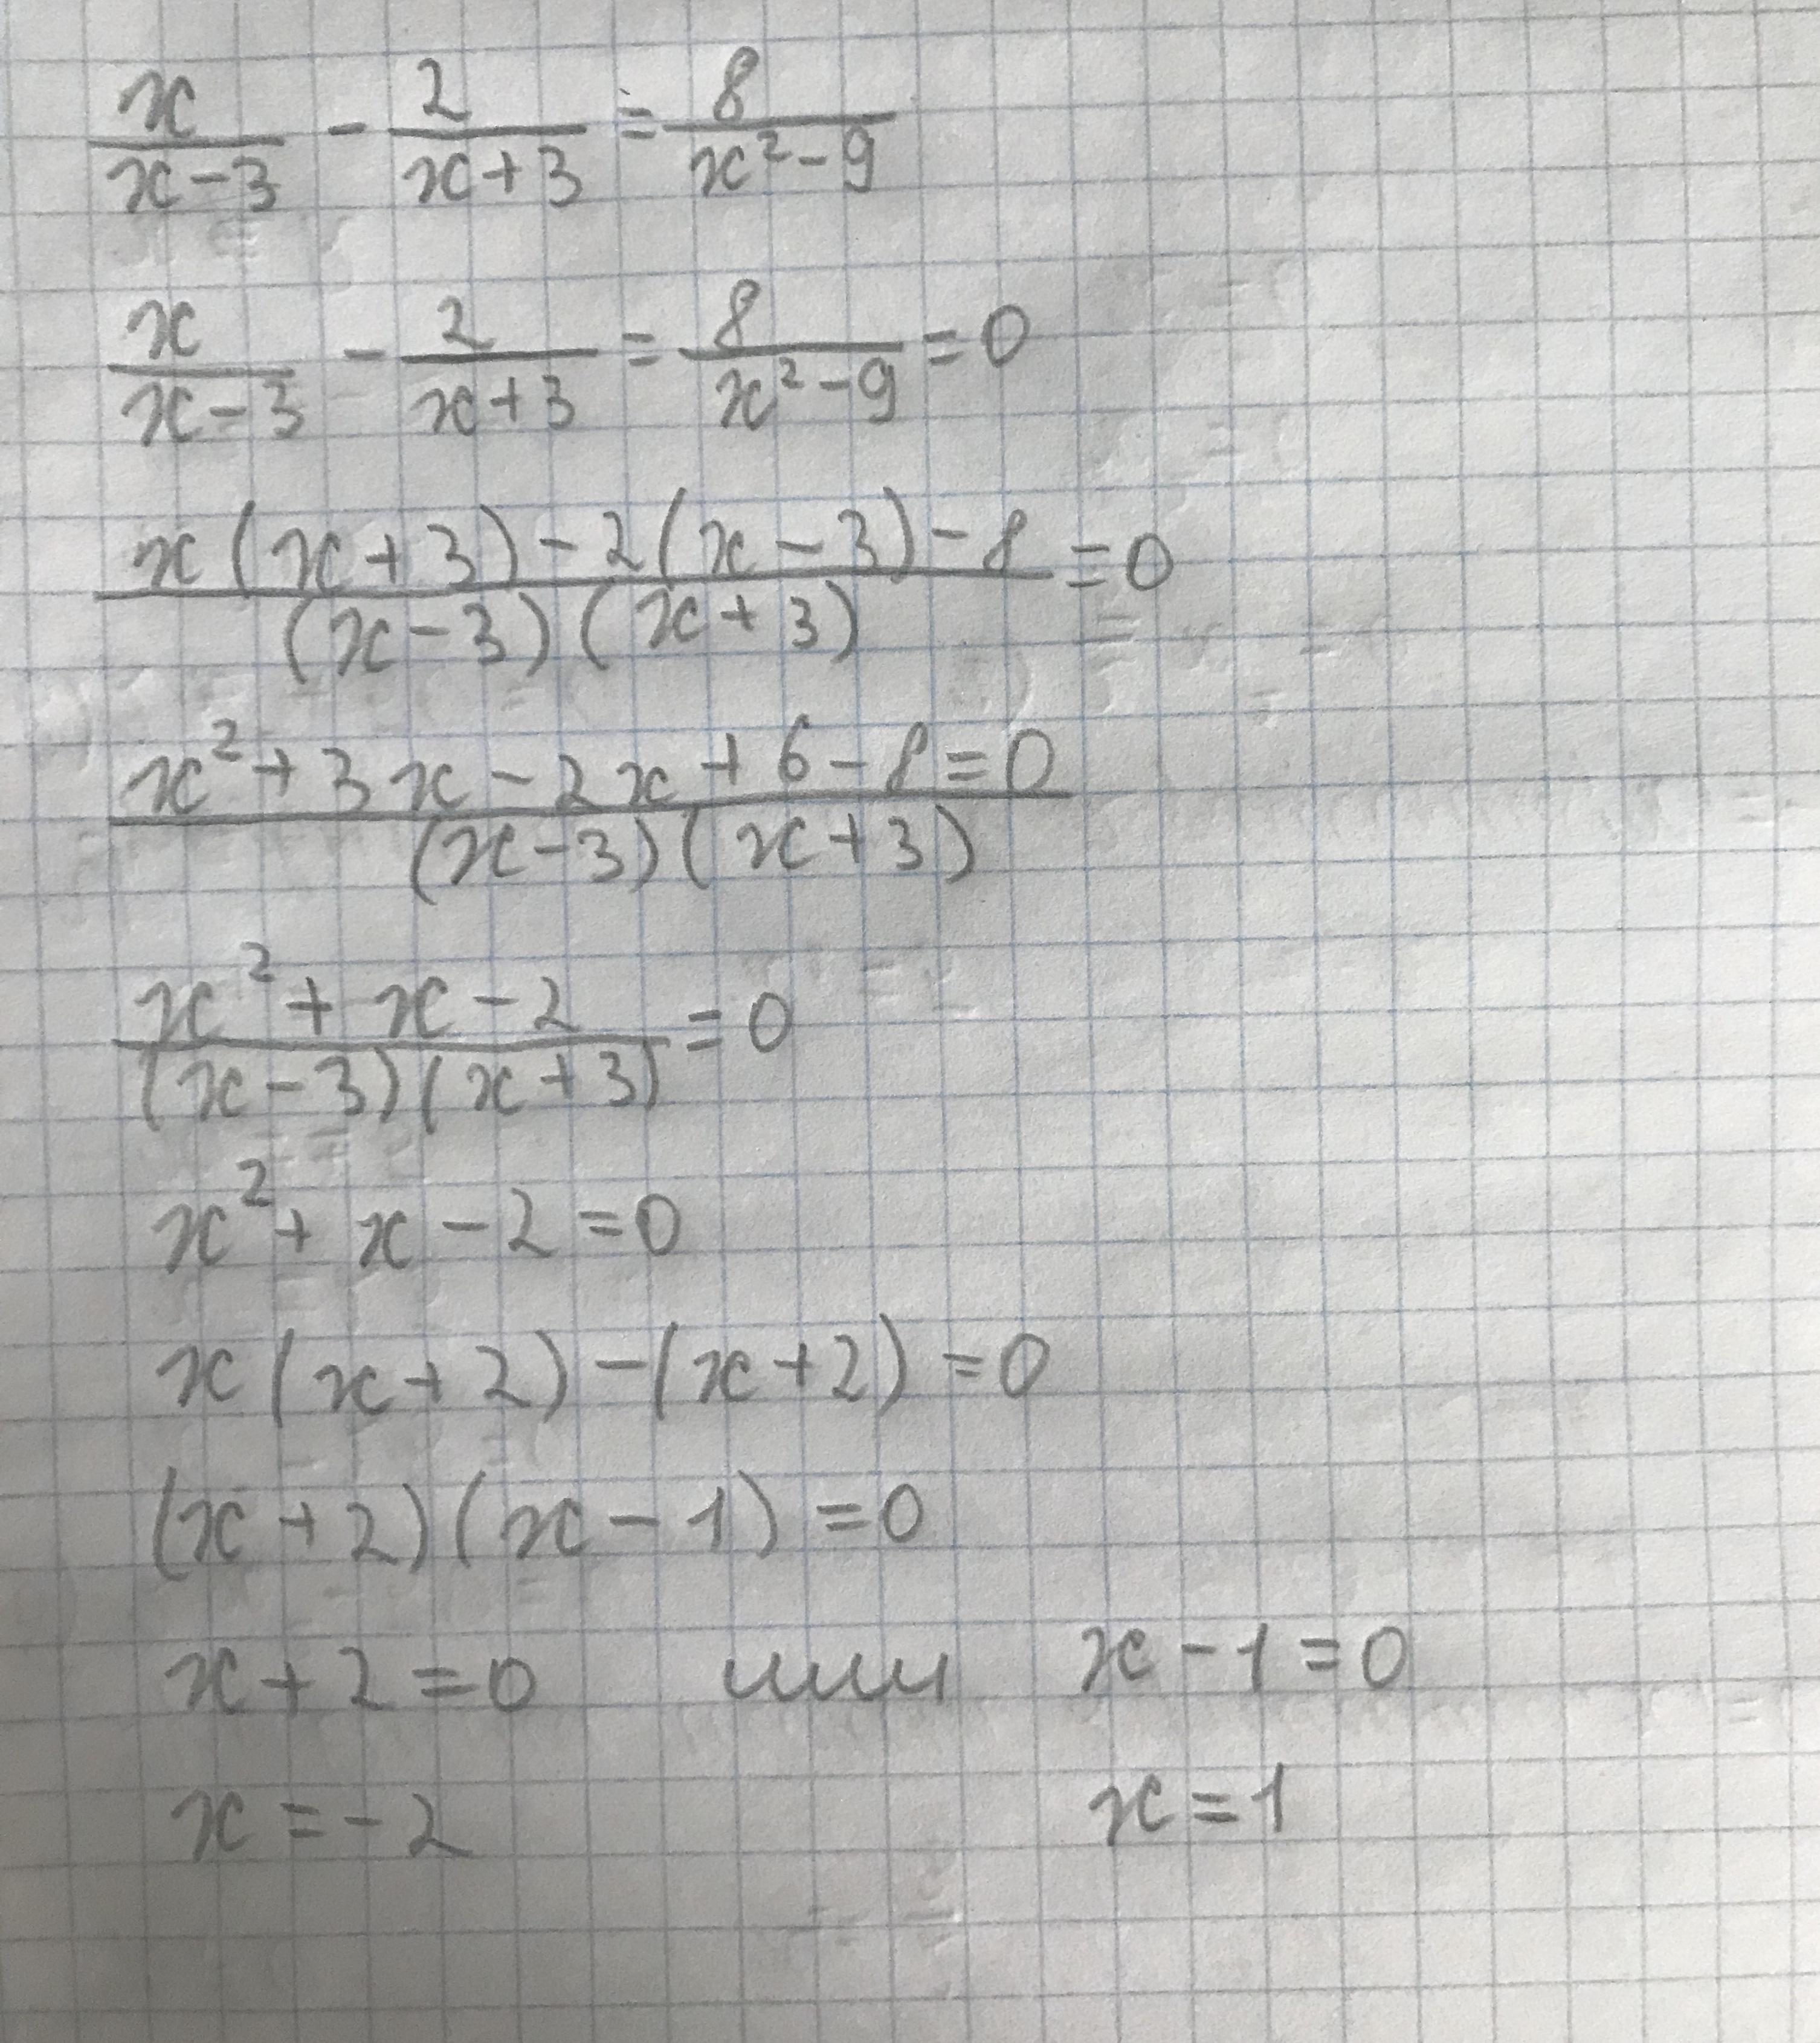 x/(x-3) - 2/(x+3) = 8/(x²-9)
x/(x-3) - 2/(x+3) = 8/(x²-9) = 0
(x(x+3)-2(x-3)-8)/((x-3)(x+3)) = 0
(x²+3x-2x+6-8=0)/((x-3)(x+3))
(x²+x-2)/((x-3)(x+3)) = 0
x²+x-2=0
x(x+2)-(x+2)=0
(x+2)(x-1)=0
x+2=0 или x-1=0
x=-2 x=1